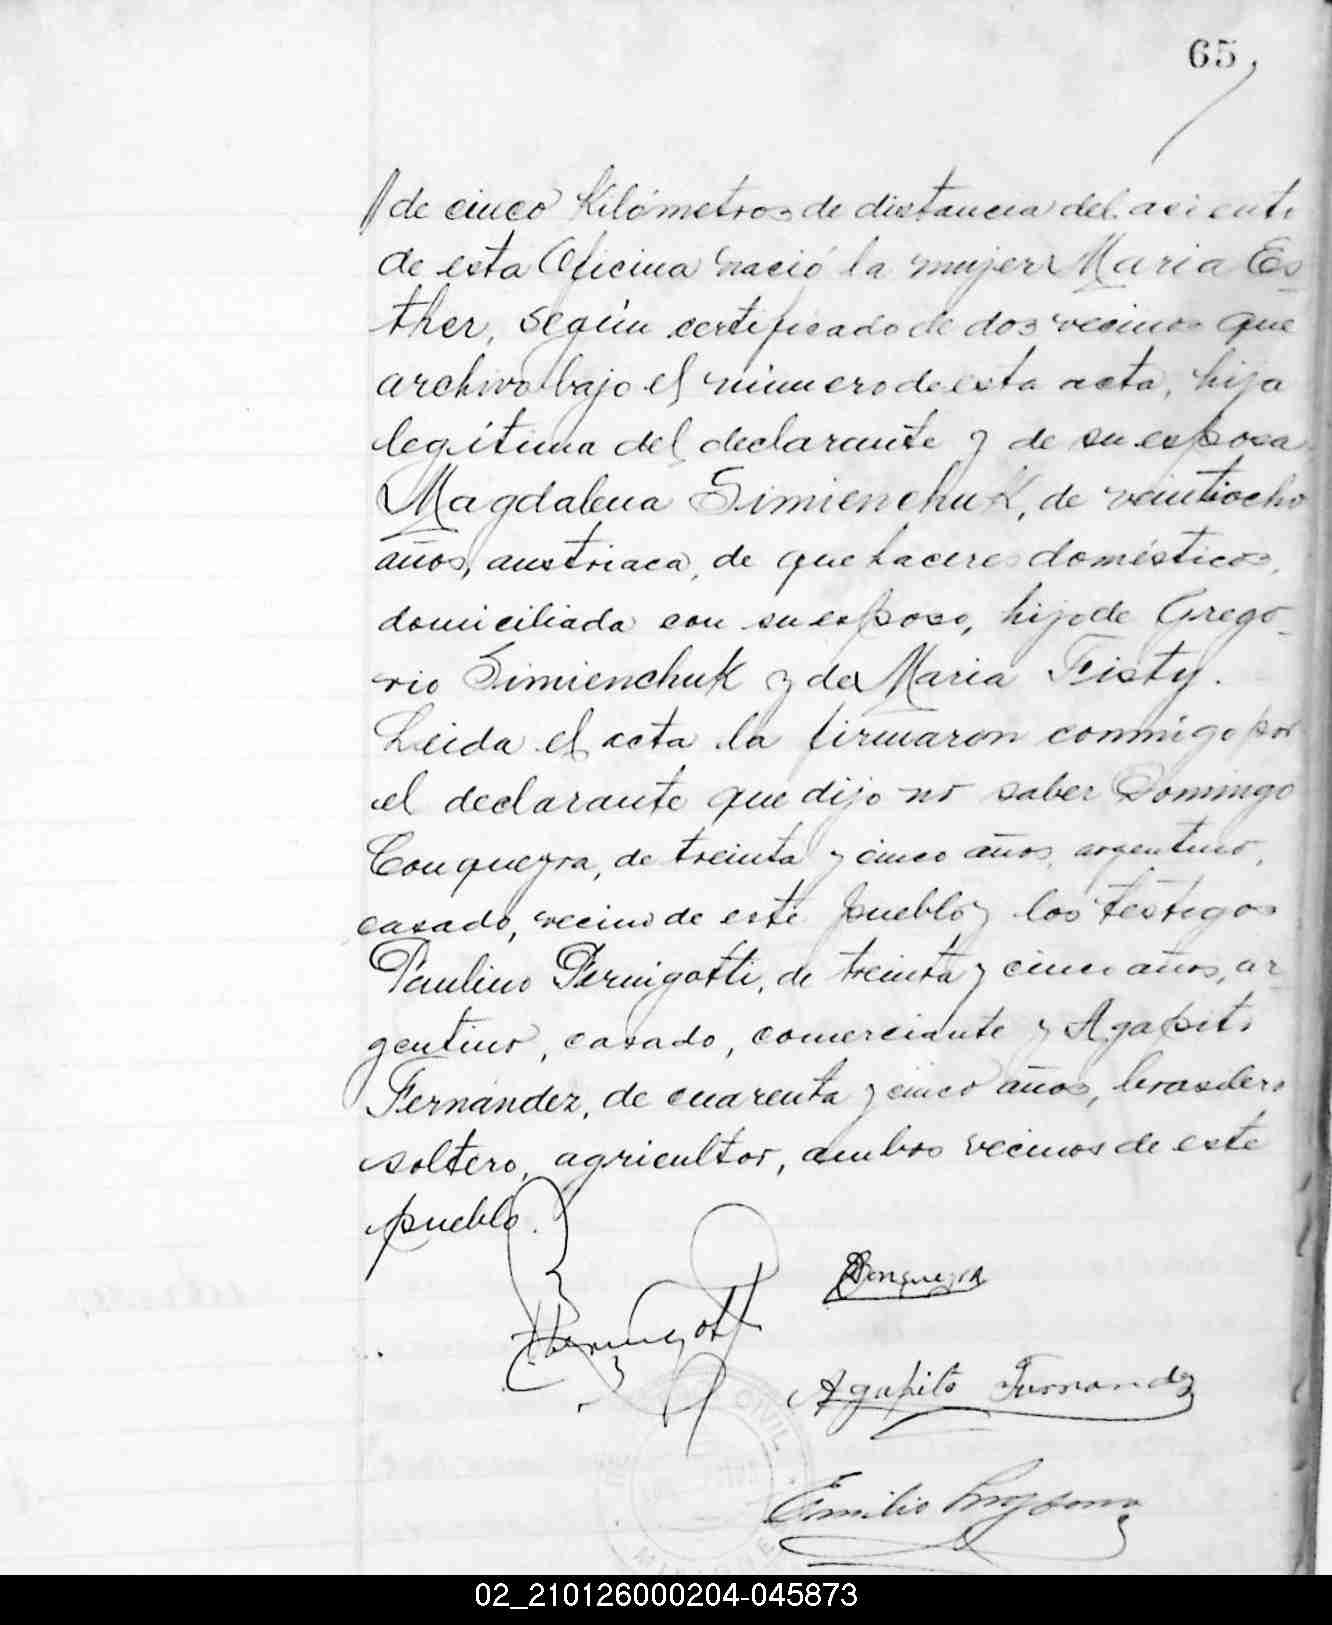 65
de cinco Kilómetros de distancia del asiento
de esta Oficina nació la mujer Maria Es
ther, según certificado de dos vecinos que
archivo bajo el número de esta acta, hija
legítima del declarante y de su esposa
Magdalena SimienchuK, de veintiocho
años, austriaca, de quehaceres domésticos,
domiciliada con su esposo, hija de Grego-
rio SimienchuK y de Maria Fisty.
Leida el acta la firmaron conmigo por
el declarante que dijo no saber Domingo
Conqueyra, de treinta y cinco años, argentino,
casado, vecino de este pueblo y los testigos
Paulino Pernigotti, de treinta y cinco años, ar-
gentino, casado, comerciante y Agapito
Fernández, de cuarenta y cinco años, brasilero
soltero, agricultor, ambos vecinos de este
pueblo.
Conqueyra
Pernigotti
Agapito Fernandez
CIVIL
Emilio
MISIONES
02_210126000204-045873